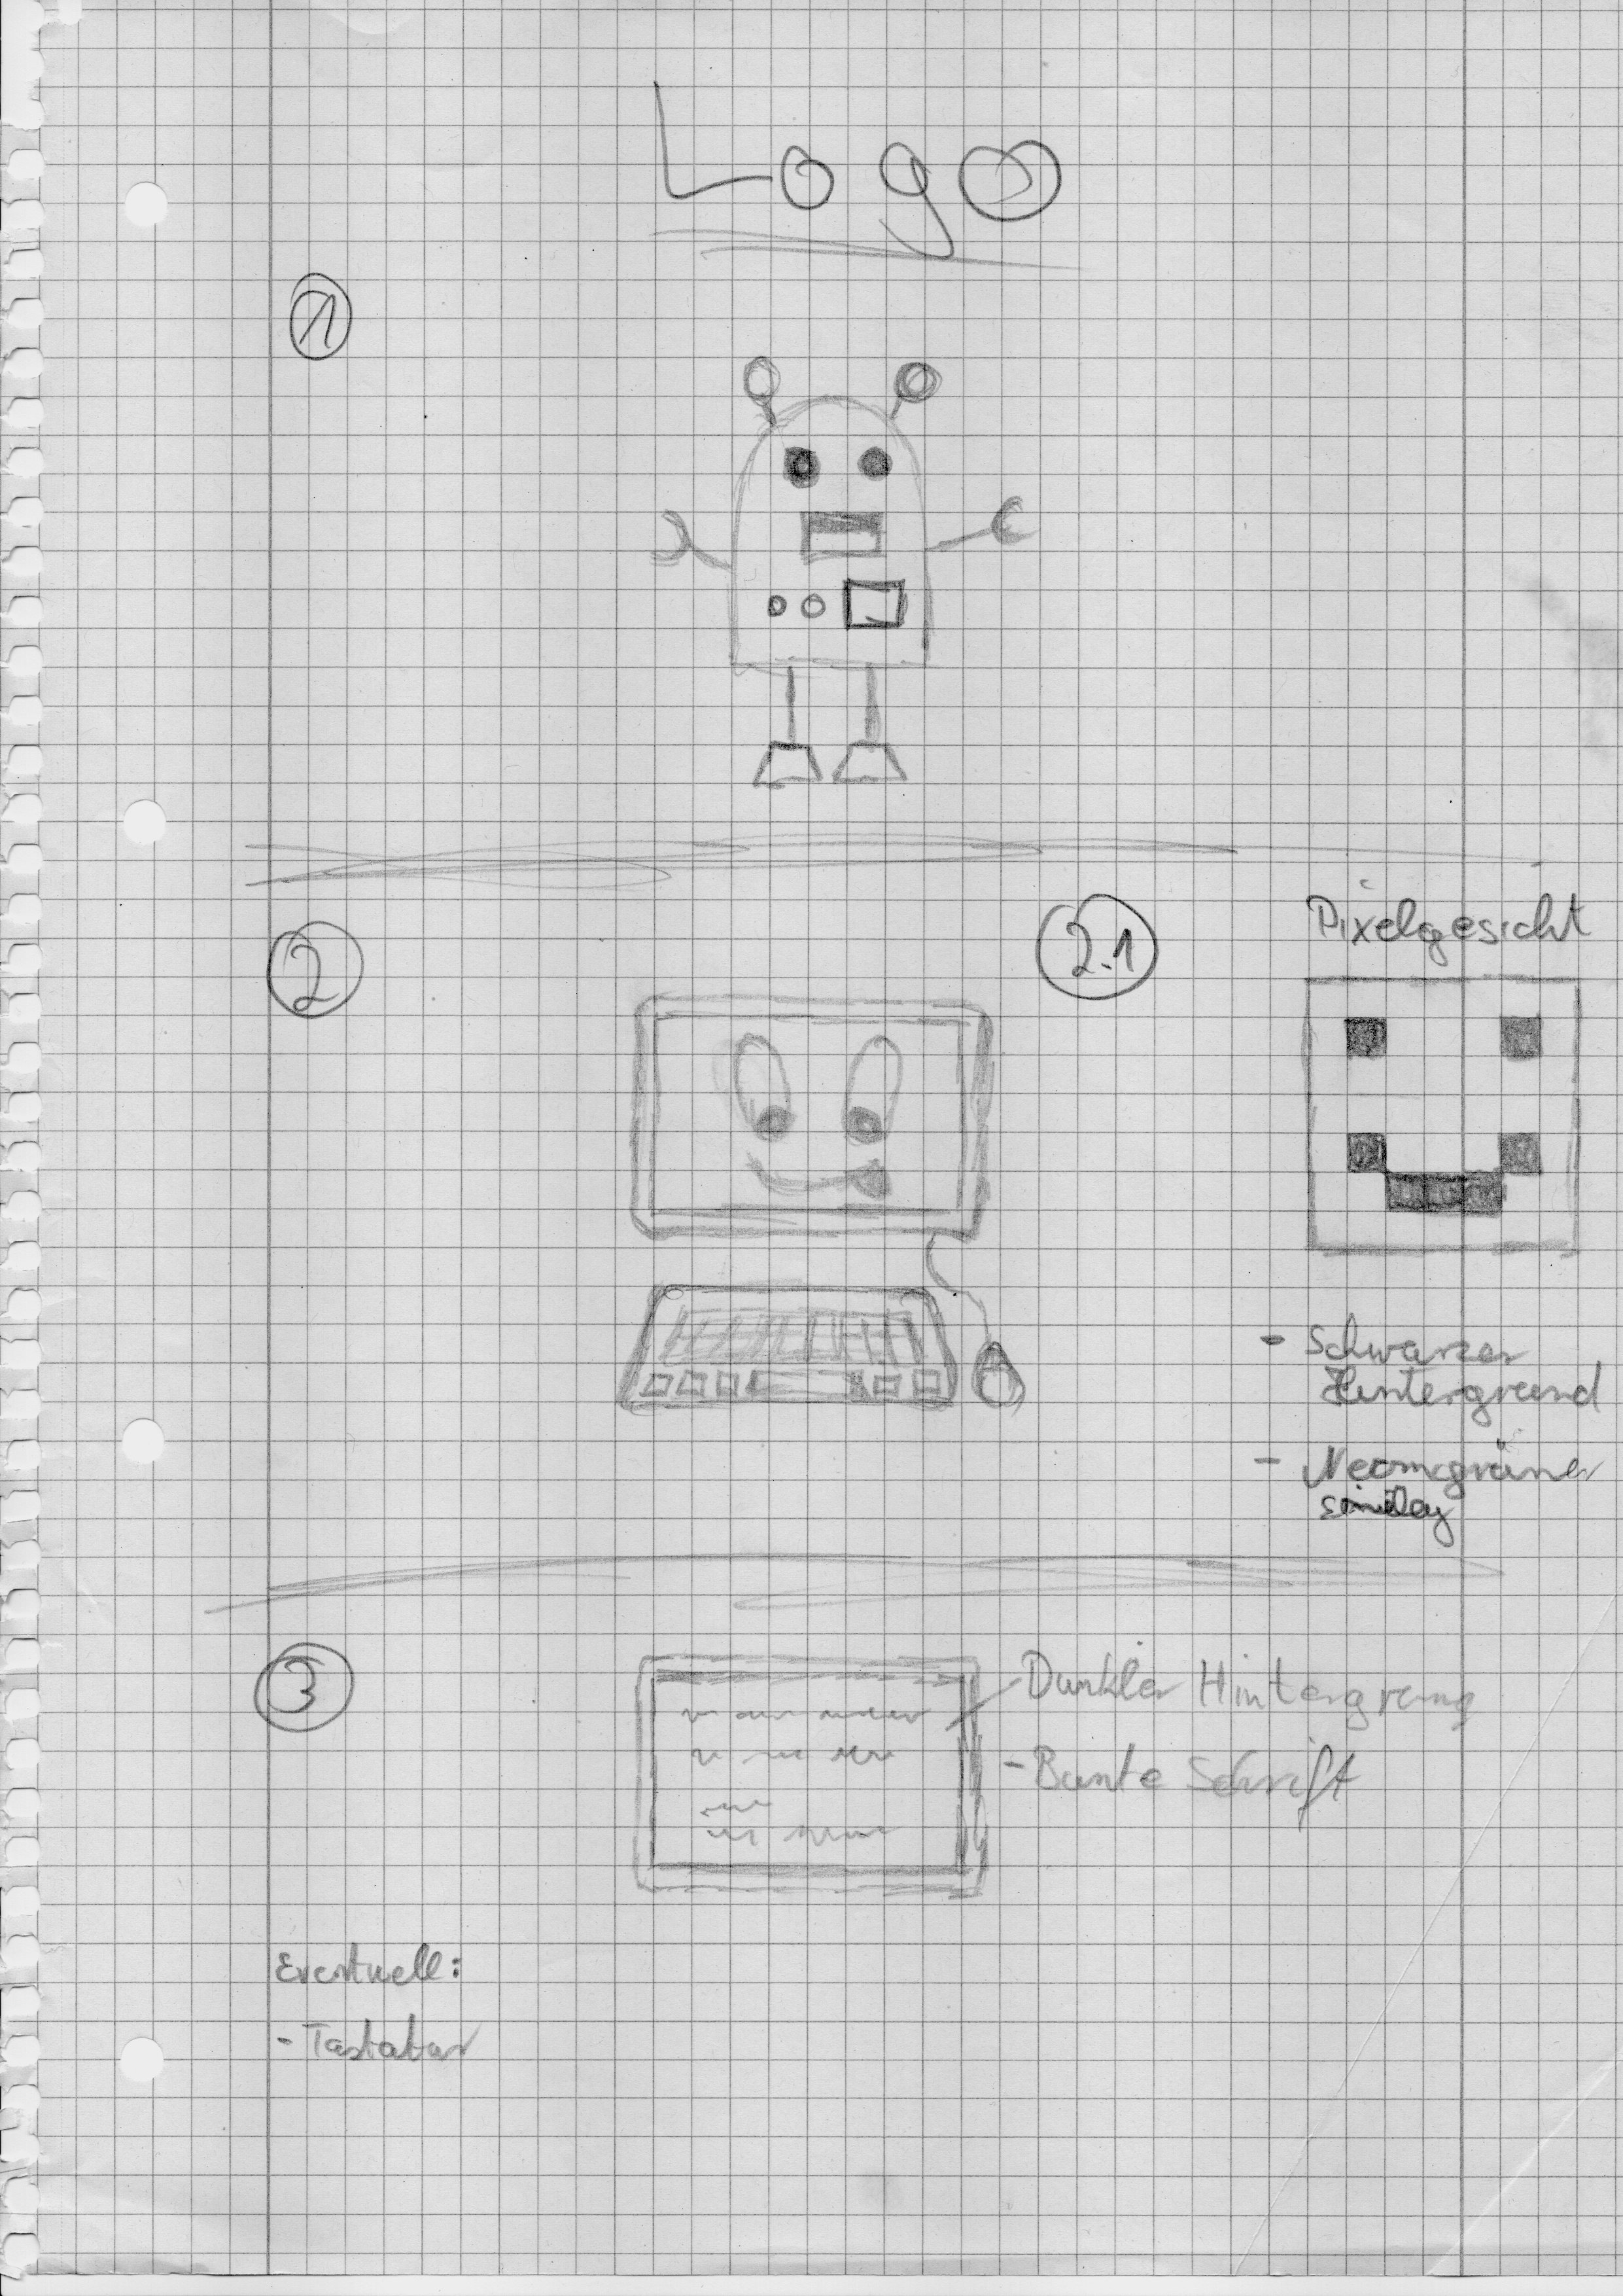 Logo
1
2
2.1
Pixelgesicht
- Schwarzer
Hintergrund
- Neongrüner
smiley
3
Dunkler Hintergrung
- Bunte Schrift
Eventuell:
- Tastatur